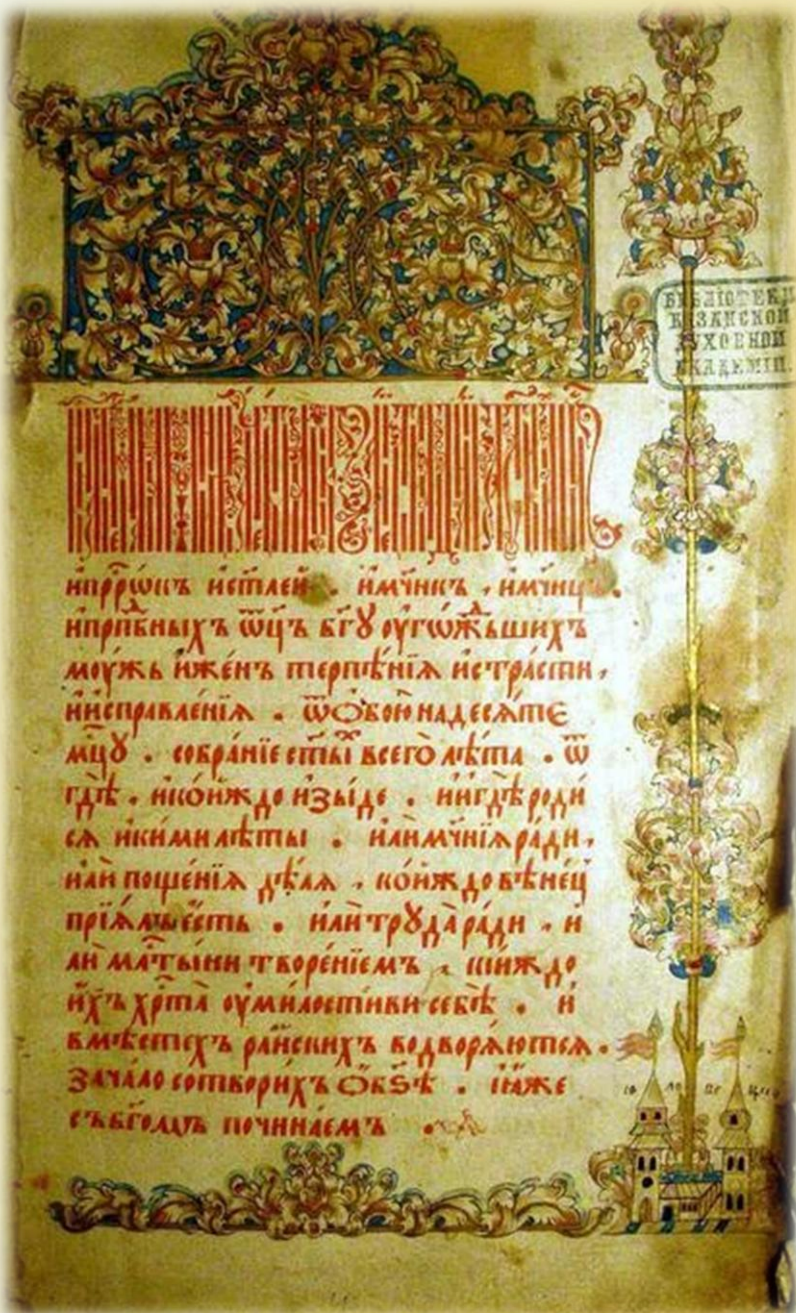 БИБЛІОТЕКА
КАЗАНСКОЙ
ДУХОВНОЙ
АКАДЕМІИ.
и҆прⷪ҇рѡкъ и҆ст҃лей . и҆мч҃нкъ , и҆мч҃нцъ .
и҆прпⷣбныхъ ѿц҃ъ бг҃ꙋ оу҆гѡжⷣьшихъ
моужь и҆же́нъ терпѣ́нїѧ и҆стра́сти ,
и҆и҆справле́нїѧ . ѿѻ҆боюнадесѧ́те
мцⷭ҇ꙋ . собра́нїе ст҃ы́ї всего̀ лѣ́та . ѿ
гдѣ̀ . и҆ко́и҆ждо и҆зы́де . и҆и҆гдѣ̀ роди́
сѧ и҆кими лѣ́ты . и҆лѝ мч҃нїѧ ра́ди ,
и҆лѝ поще́нїѧ дѣ́лѧ , ко́и҆ждо вѣне́ц
прїѧ́лъ є҆сть . и҆лѝ трꙋда̀ ра́ди , и҆
лѝ млⷭ҇ты́ни творе́нїемъ , кі́иждо
и҆́хъ хрⷭ҇та̀ оу҆ми́лостиви себѣ̀ . и҆
вмѣ́стехъ ра́йскихъ водворѧ́ютсѧ .
зача́ло сотвори́хъ ѻ҆бѕѣ . ꙗ҆́же
съ бг҃омъ починае́мъ .